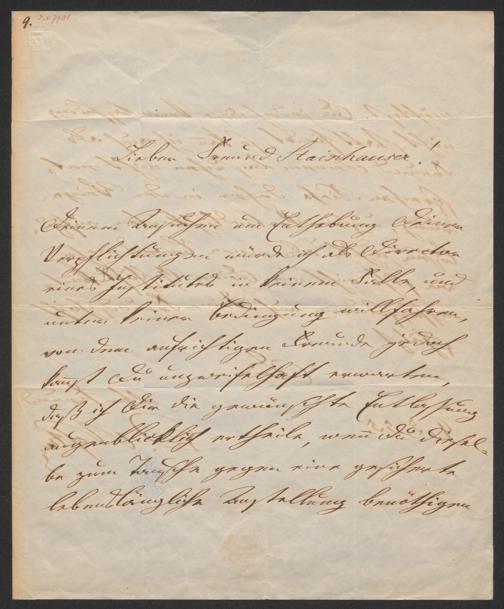 9.
Lieben Freund Stainhauser!
Deinem Ansuchen um Enthebung Deiner
Verpflichtungen würde ich als Director
eines Institutes in keinem Falle, und
unter keiner Bedingung willfahren,
von dem aufrichtigen Freunde jedoch
kannst Du unzweifelhaft erwarten,
daß ich Dir die gewünschte Entlassung
augenblicklich ertheile, wenn Du diesel-
be zum Tausche gegen eine gesicherte
lebenslängliche Anstellung benöthigen